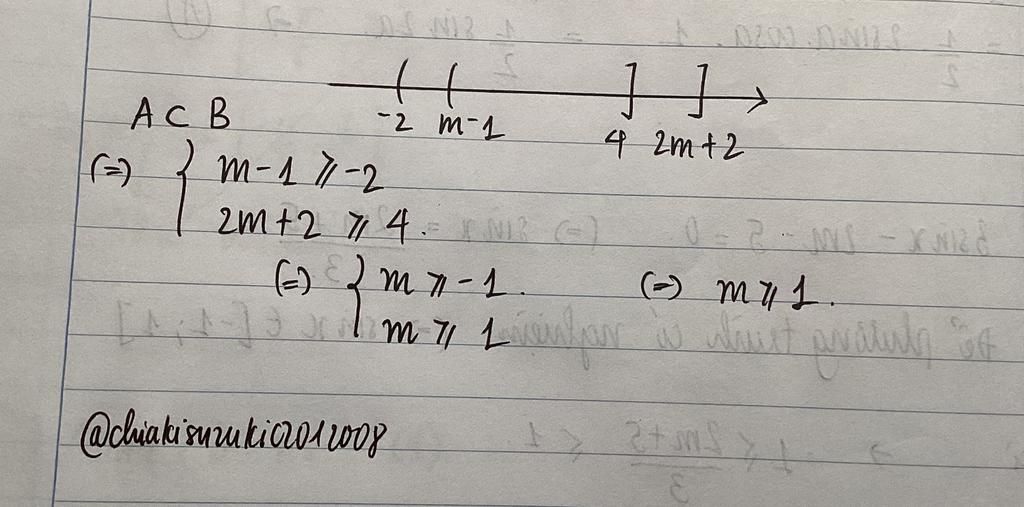 -2 m-1 4 2m+2
A ⊂ B
(=) { m-1 ⩾ -2
2m+2 ⩾ 4.
(=) { m ⩾ -1. (=) m ⩾ 1.
m ⩾ 1
@chiakisuzuki02012008